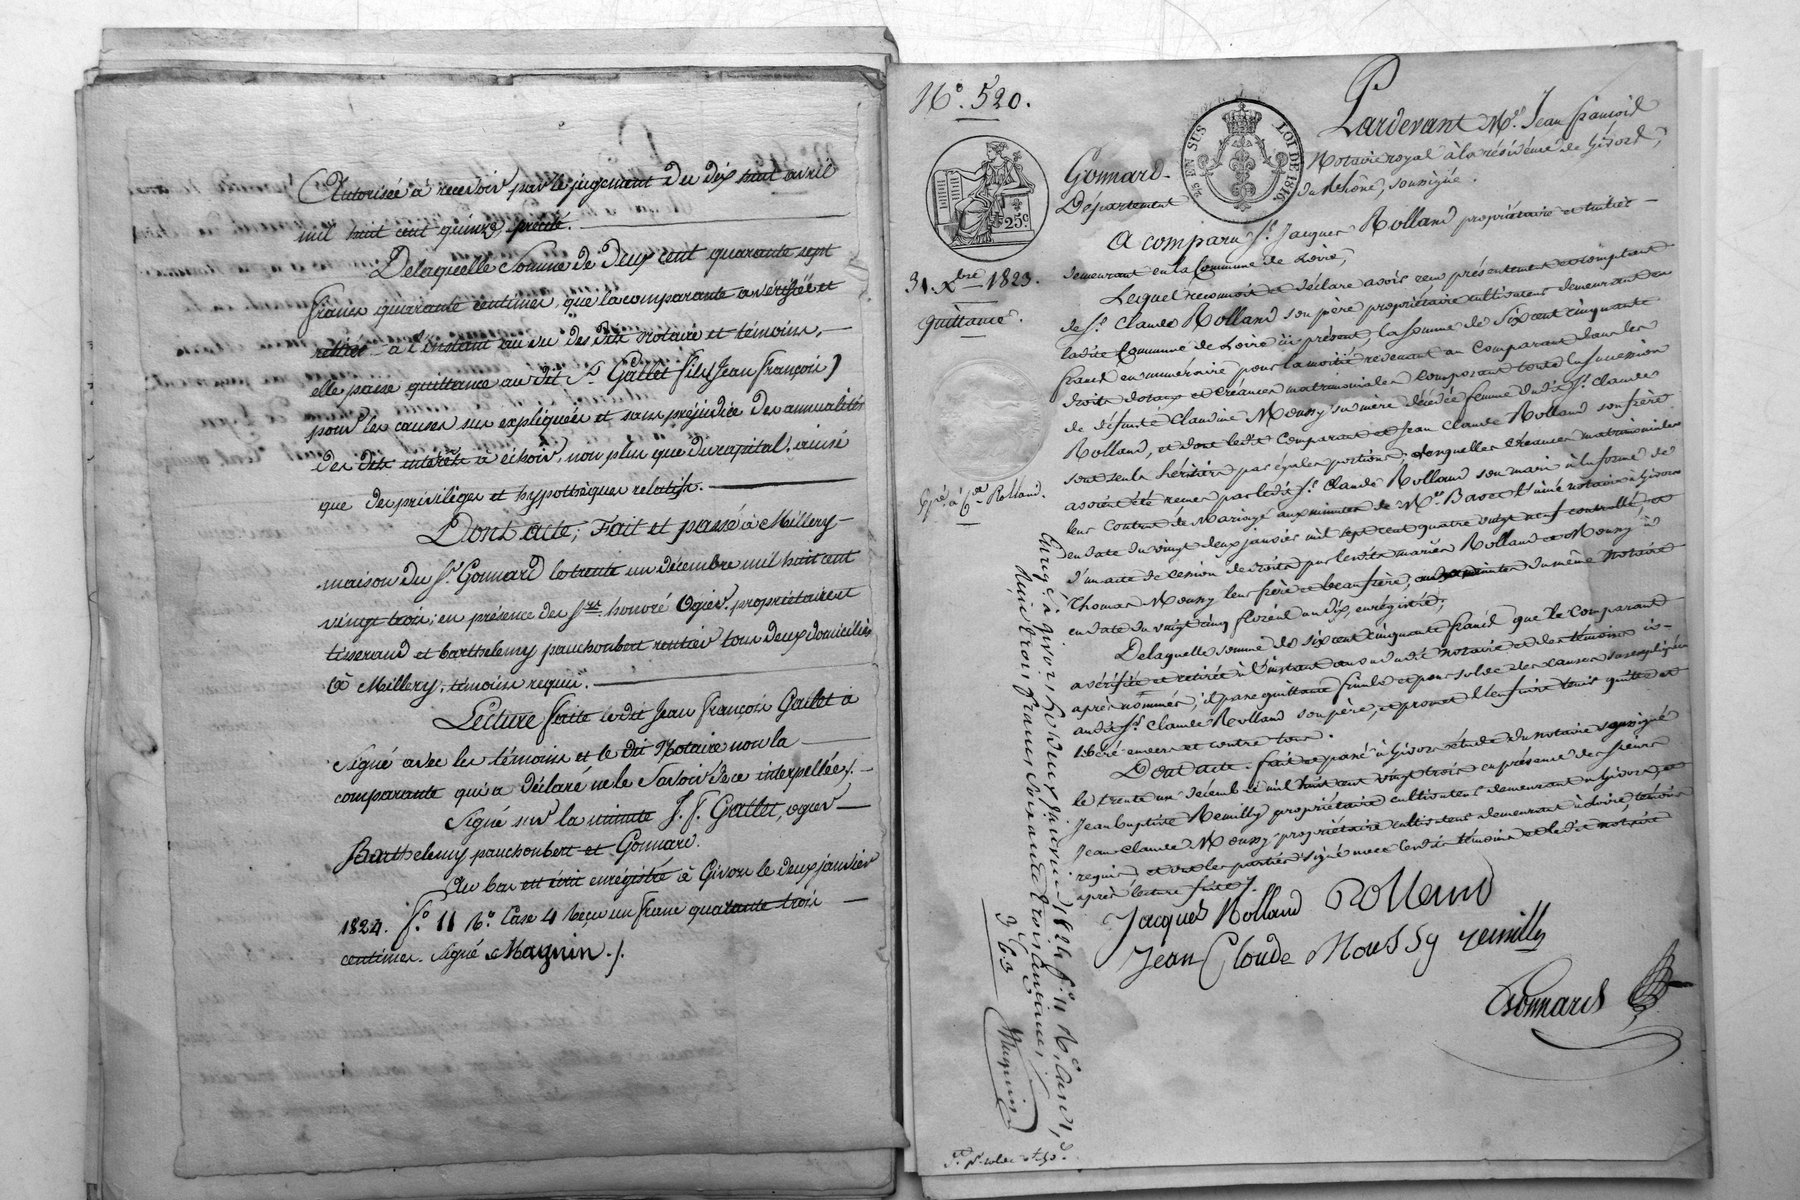 Autorisée à recevoir par le jugement du dix huit avril
mil huit cent quinze, précité.
Delaquelle Somme de Deux cent quarante sept
francs quarante centimes, que la comparante a vérifiée et
retirée à l'instant au vu des dits Notaire et témoins,
elle passe quittance au dit Sr. Gallet fils (Jean François)
pour les causes sus expliquées et sans préjudice des annualités
des dits intérêts à échoir, non plus que du capital, ainsi
que des privilèges et hypothèques relatifs.
Dont acte, Fait et passé à Millery
maison du Sr. Gonnard le trente un décembre mil huit cent
vingt trois; en présence des Srs. honoré Ogier, propriétaire et
tisserand et barthelemy pauchoubert rentier tous deux domiciliés
à Millery, témoins requis.
Lecture faite le dit Jean François Gallet a
signé avec les témoins et le dit Notaire non la
comparante qui a déclaré ne le savoir de ce interpellée.
Signé sur la minute J. F. Gallet, ogier
Barthelemy pauchoubert et Gonnard.
Au bas est écrit enregistré à Givors le deux janvier
1824. fo. 11 Ro. Case 4 reçu un franc quarante trois
centimes. Signé Magnin.
No. 520.
25c
EN SUS
LOI DE 1816
31 Xbre 1823.
quittance.
Expé. à Cde Rolland.
Pardevant Me. Jean François
Gonnard Notaire royal à la résidence de Givors,
Département du Rhône, soussigné.
A comparu Sr. Jacques Rolland propriétaire et
demeurant en la Commune de Loire,
Lequel reconnoit et déclare avoir reçu présentement et comptant
de Sr. Claude Rolland son père propriétaire cultivateur demeurant en
ladite Commune de Loire ici présent, la somme de Six cent cinquante
francs en numéraire pour la moitié revenant au Comparant dans les
droits dotaux et créances matrimoniales composant toute la succession
de défunte Claudine Moussy sa mère décédée femme dudit Sr. Claude
Rolland, et dont ledit Comparant et Jean Claude Rolland son frère
sont seuls héritiers par égales portions; desquelles créances matrimoniales
avoient été reçues par ledit Sr. Claude Rolland son mari à la forme de
leur Contrat de Mariage aux minutes de Me. Barou l'ainé notaire à Givors
en date du vingt deux janvier mil sept cent quatre vingt neuf controllé, et
d'un acte de cession de droits par lesdits mariés Rolland et Moussy à
Thomas Moussy leur frère et beau frère, aux minutes du même Notaire
en date du vingt cinq floréal an dix, enregistré;
Delaquelle somme de six cent cinquante francs que le comparant
a vérifiée et retirée à l'instant au vu dudit notaire et des témoins ci-
après nommés, il passe quittance finale et pour solde des causes sus expliquées
audit Sr. Claude Rolland son père, et promet l'en faire tenir quitte et
libéré envers et contre tous.
Dont acte. fait et passé à Givors étude du notaire soussigné
le trente un décembre mil huit cent vingt trois en présence des sieurs
Jean baptiste Remilly propriétaire cultivateur demeurant à Givors, et
Jean Claude Moussy propriétaire cultivateur demeurant à Loire, témoins
requis, et ont les parties signé avec lesdits témoins et le dit notaire
après lecture faite.
Jacques Rolland Rolland
Jean Cloude Moussy remilly
Gonnard
Enreg. à givors le deux janvier 1824 fo. 11 Ro. Case 1,
Reçu trois francs soixante trois centimes
3 63
Magnin